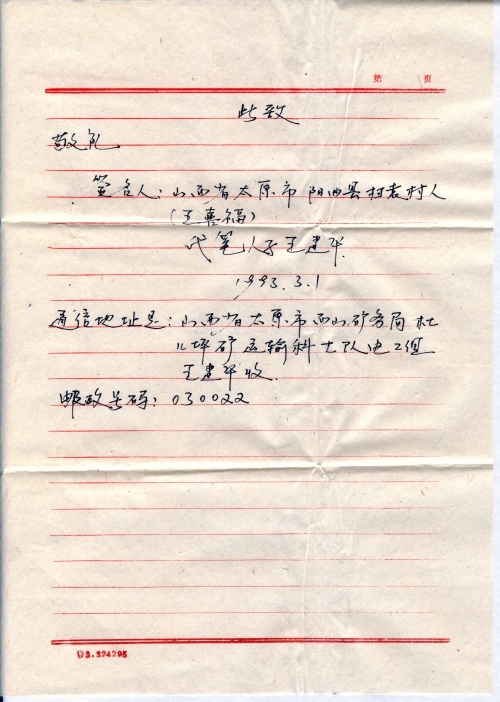 第 页
此致
敬礼
签名人：山西省太原市阳曲县村表村人
(王喜福)
代笔人子王建华.
1993.3.1
通信地址是：山西省太原市西山矿务局杜
儿坪矿运输科七队电工组
王建华收.
邮政号码：030022
03.324295